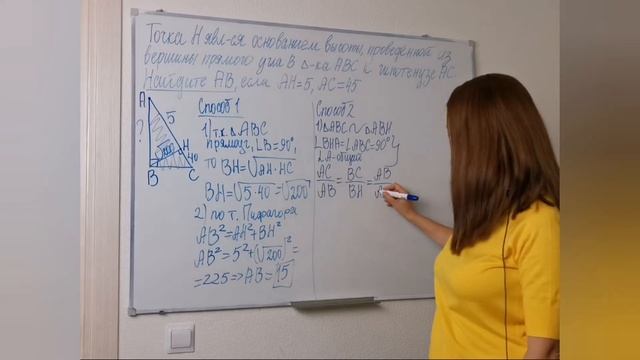 Точка H явл-ся основанием высоты, проведенной из
вершины прямого угла B Δ-ка ABC к гипотенузе AC.
Найдите AB, если AH=5, AC=45
A
5
?
√200
H
40
B
C
Способ 1
1) т.к. Δ ABC
прямоуг, ∠B=90°,
то BH=√AH·HC
BH=√5·40=√200
2) по т. Пифагора
AB²=AH²+BH²
AB²=5²+(√200)²=
=225=>AB=15
Способ 2
1) ΔABC ∾ ΔABH
∠BHA=∠ABC=90°
∠A-общий
AC/AB = BC/BH = AB/